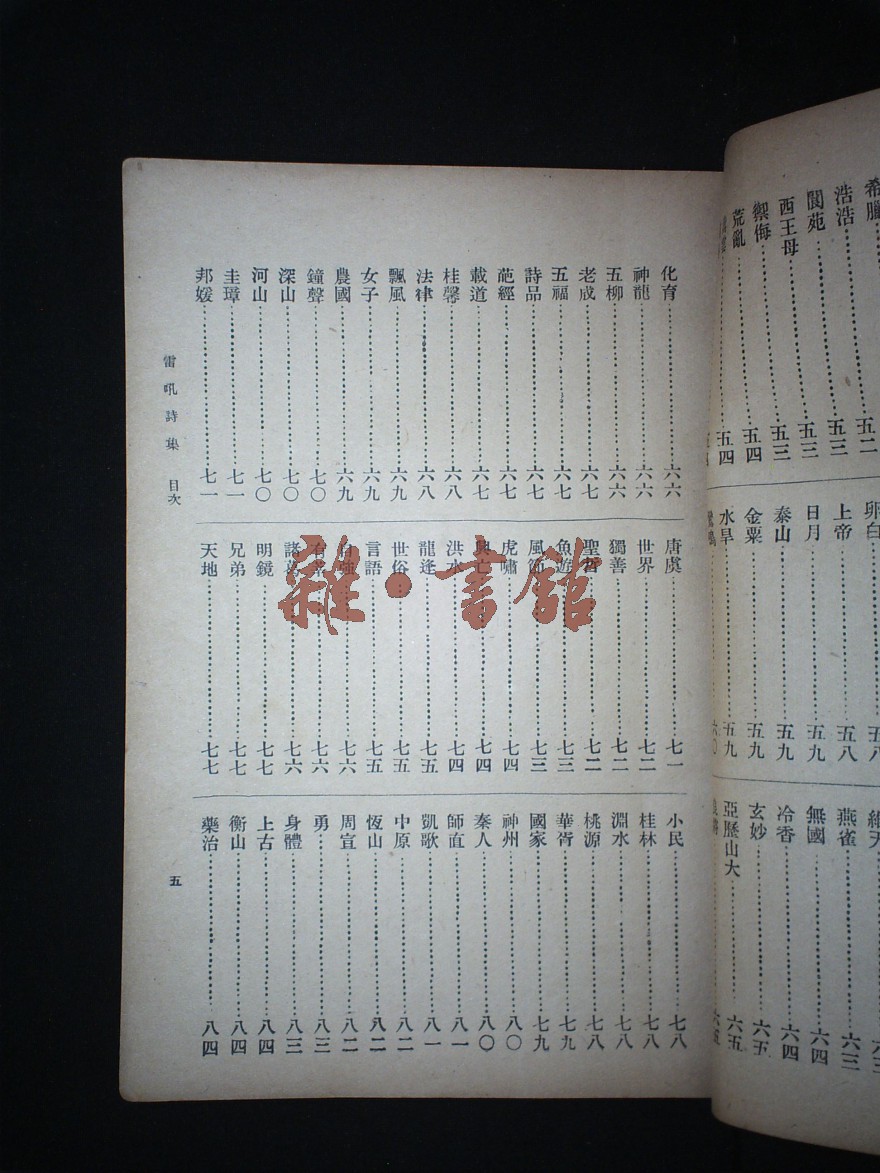 希臘……五二
浩浩……五三
閬苑……五三
西王母……五三
禦侮……五四
荒亂……五四
卵白……五八
上帝……五八
日月……五九
泰山……五九
金粟……五九
水旱……五九
六〇
維天……六三
燕雀……六三
無國……六四
冷香……六四
玄妙……六五
亞歷山大……六五
六五
化育……六六
神龍……六六
五柳……六六
老成……六七
五福……六七
詩品……六七
葩經……六七
載道……六七
桂馨……六八
法律……六八
飄風……六九
女子……六九
農國……六九
鐘聲……七〇
深山……七〇
河山……七〇
圭璋……七一
邦媛……七一
唐虞……七一
世界……七二
獨善……七二
聖哲……七二
魚遊……七三
風節……七三
虎嘯……七四
興亡……七四
洪水……七四
龍逢……七五
世俗……七五
言語……七五
自強……七六
有莘……七六
諸葛……七六
明鏡……七七
兄弟……七七
天地……七七
小民……七八
桂林……七八
淵水……七八
桃源……七八
華胥……七九
國家……七九
神州……八〇
秦人……八〇
師直……八一
凱歌……八一
中原……八二
恆山……八二
周宣……八二
勇……八三
身體……八三
上古……八四
衡山……八四
藥治……八四
雷吼詩集 目次
五
雜·書館